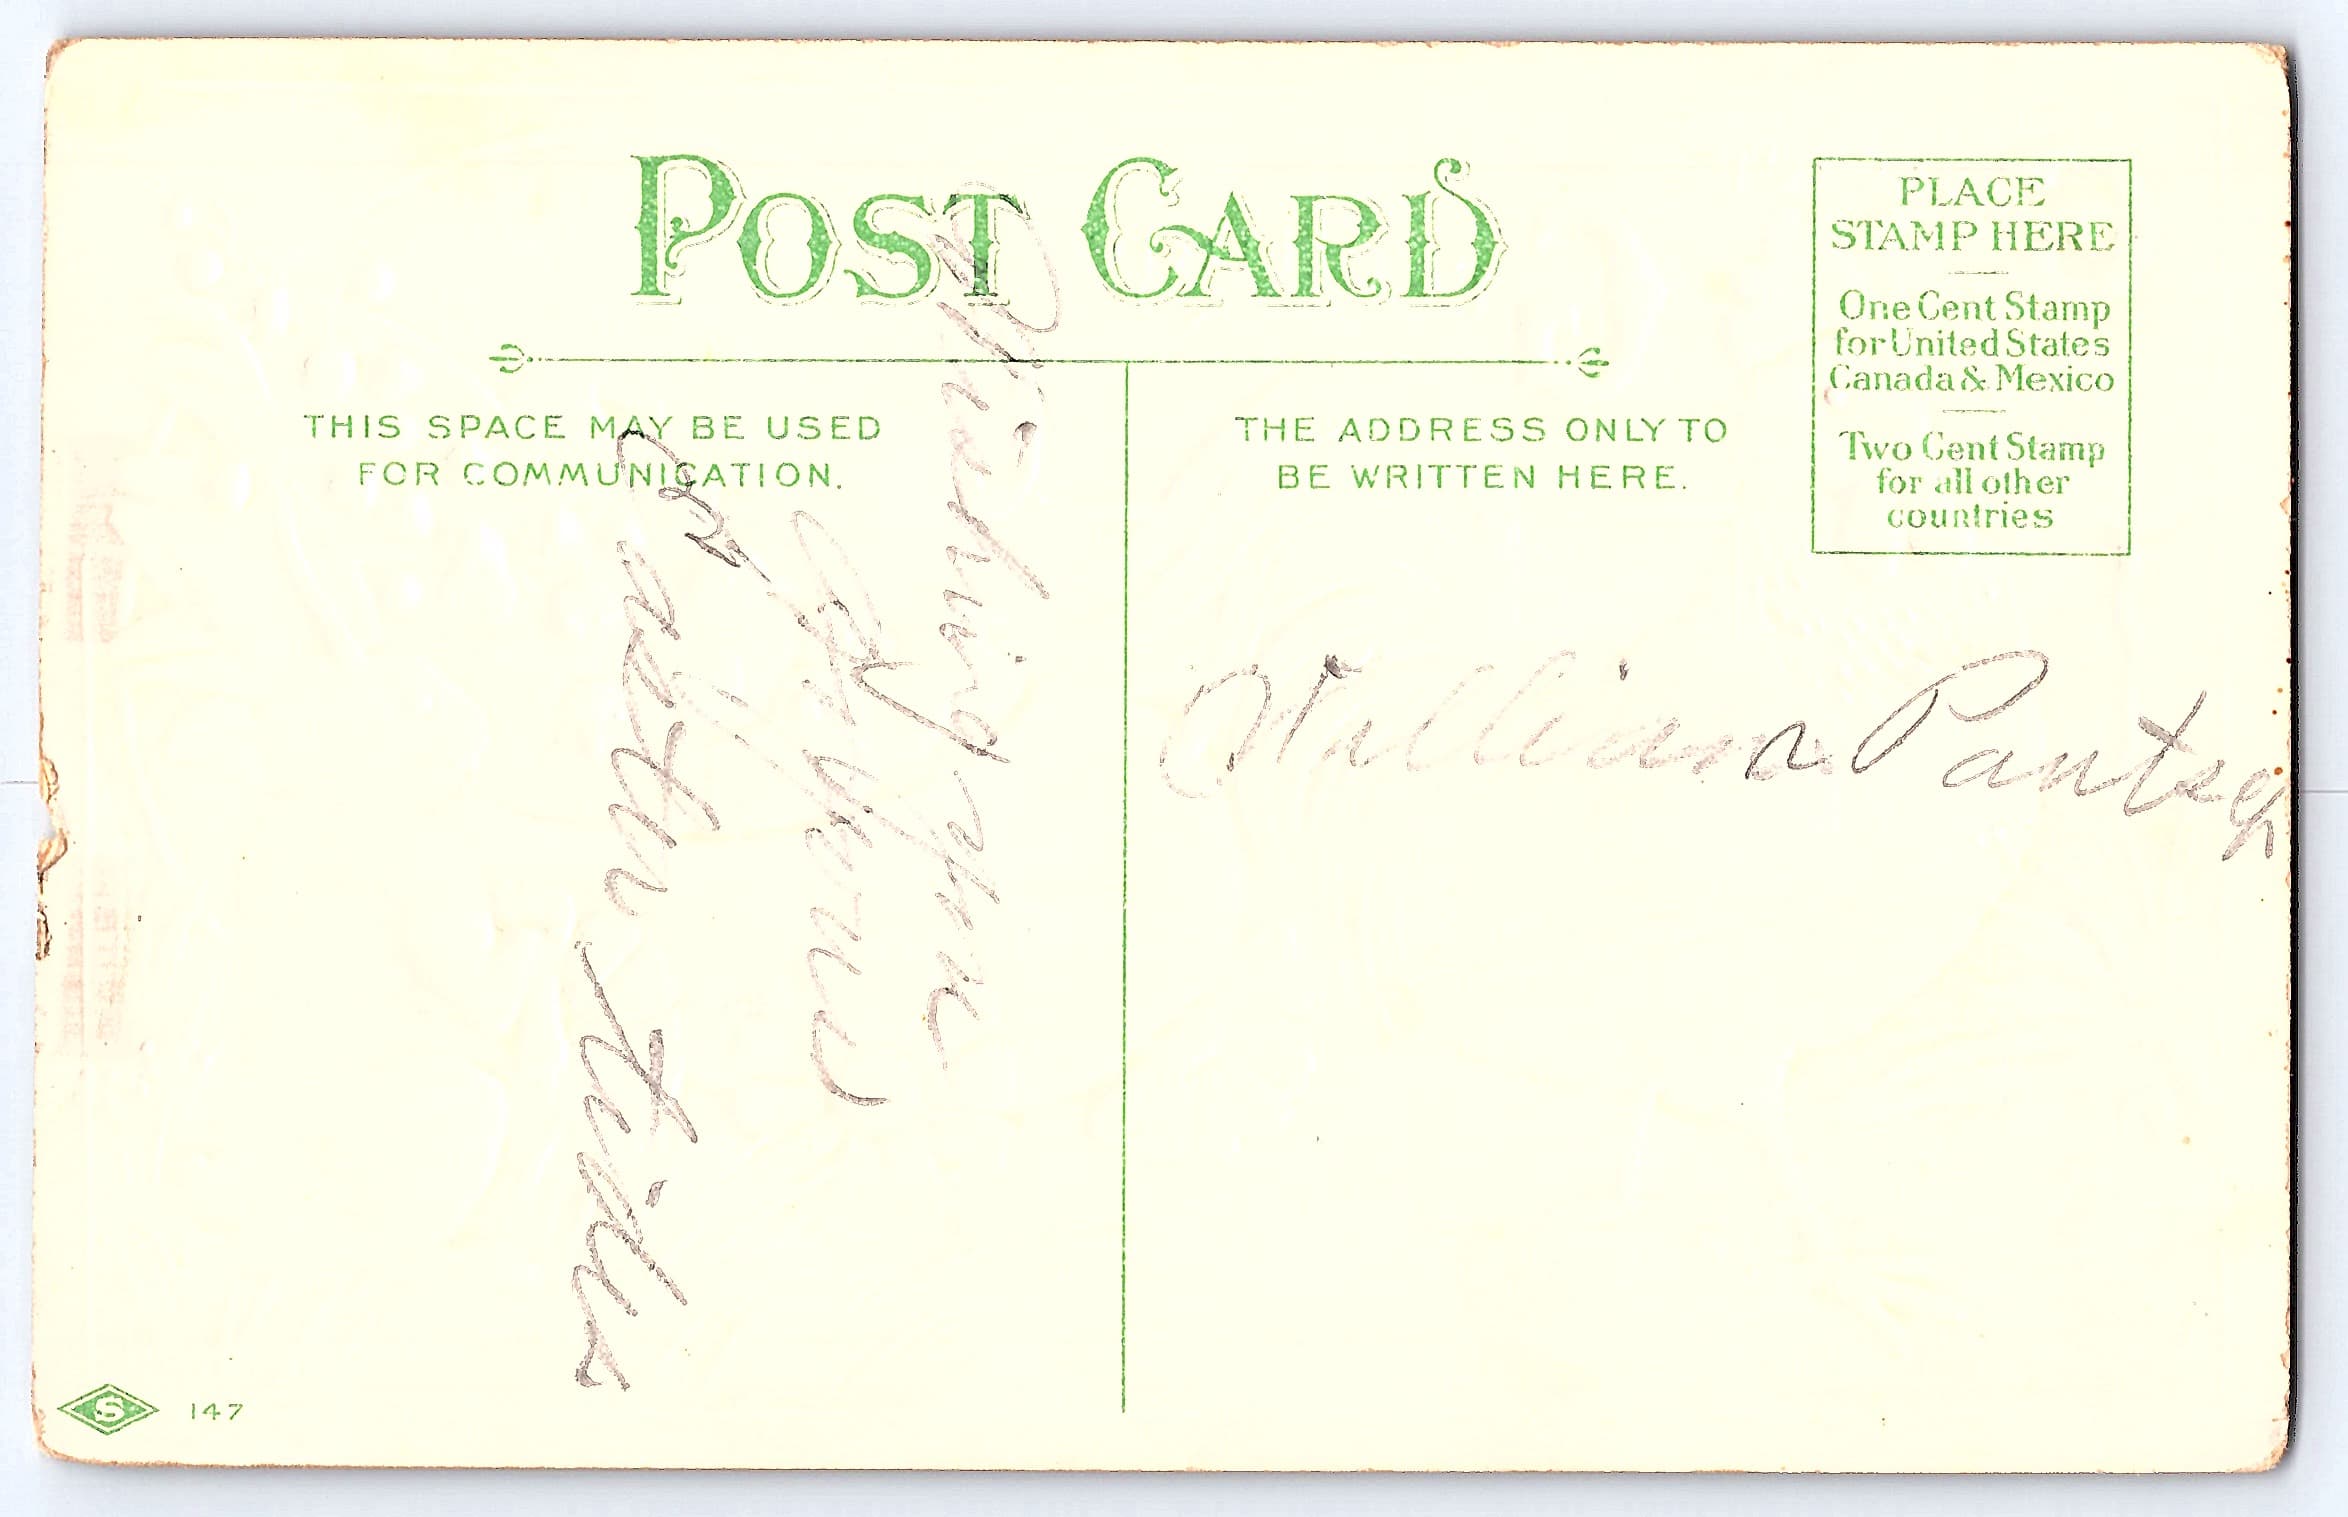 POST CARD
THIS SPACE MAY BE USED
FOR COMMUNICATION.
THE ADDRESS ONLY TO
BE WRITTEN HERE.
PLACE
STAMP HERE
One Cent Stamp
for United States
Canada & Mexico
Two Cent Stamp
for all other
countries
Wishing you
a
William
S 147